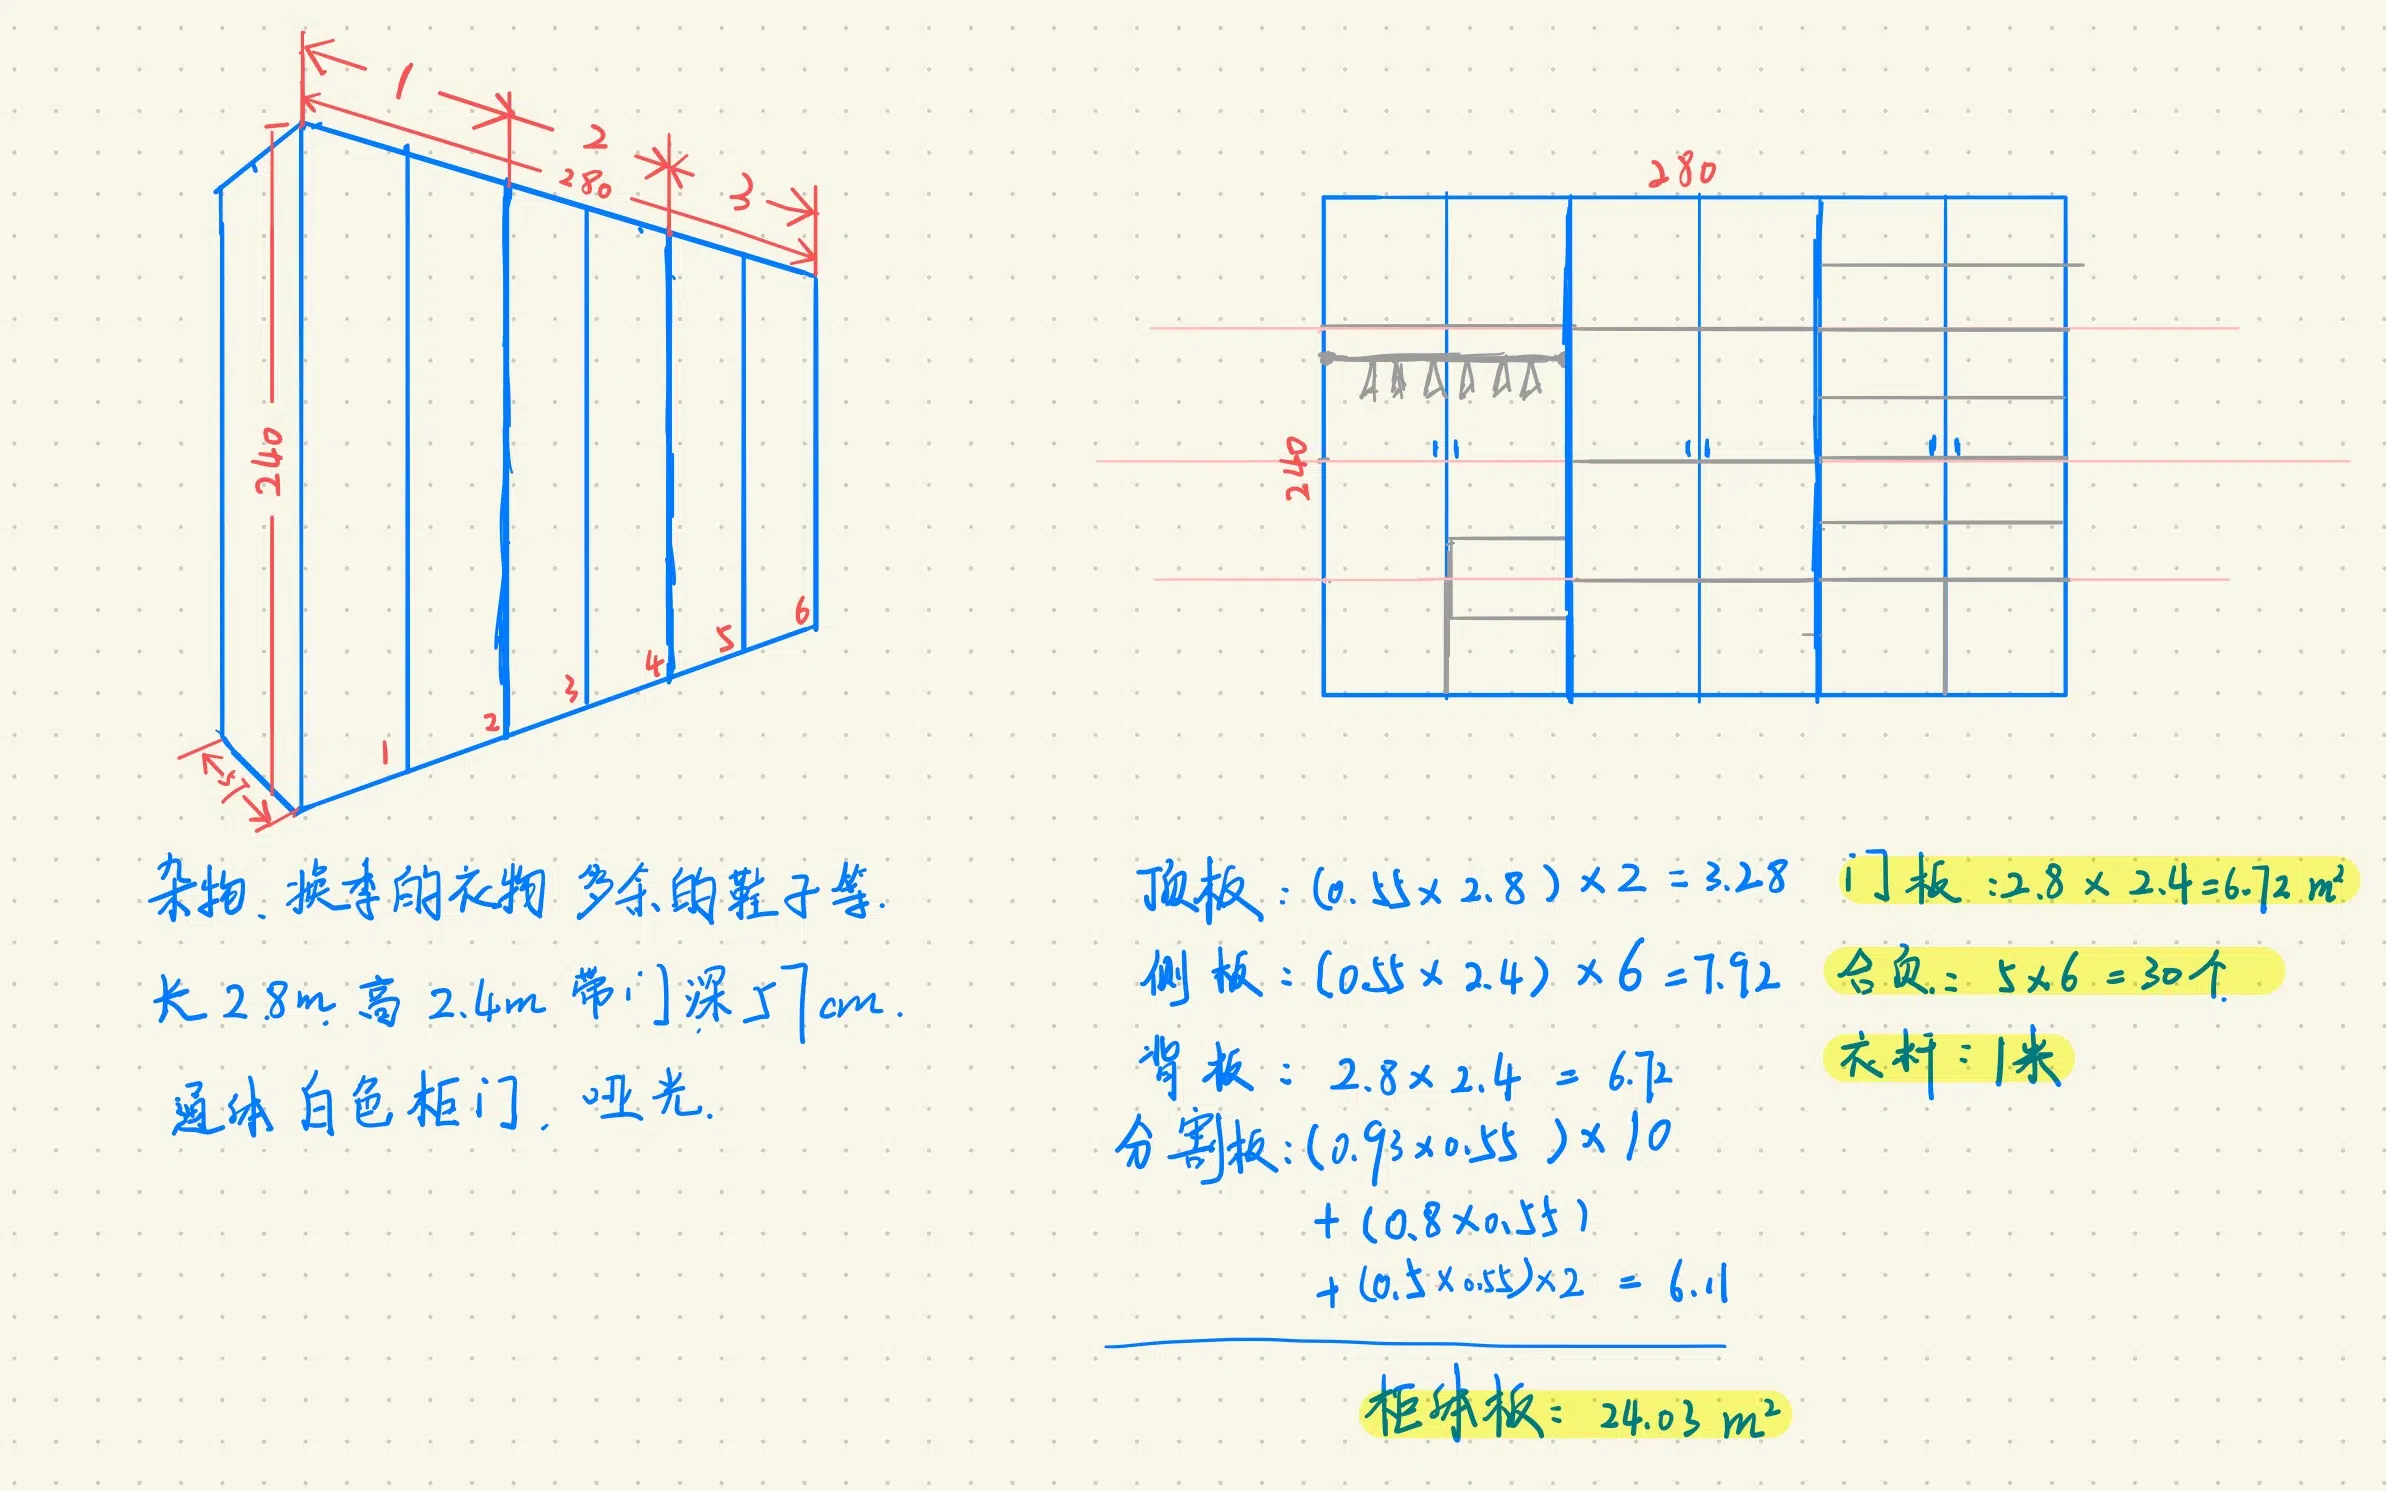 1
2
280
3
240
57
1
2
3
4
5
6
280
240
杂物、换季的衣物 多余的鞋子等.
长 2.8m. 高 2.4m 带门深 57cm.
通体 白色柜门. 哑光.
顶板: (0.55 × 2.8) × 2 = 3.28
侧板: (0.55 × 2.4) × 6 = 7.92
背板: 2.8 × 2.4 = 6.72
分割板: (0.93 × 0.55) × 10
+ (0.8 × 0.55)
+ (0.5 × 0.55) × 2 = 6.11
柜体板: 24.03 m²
门板: 2.8 × 2.4 = 6.72 m²
合页: 5 × 6 = 30个.
衣杆: 1米